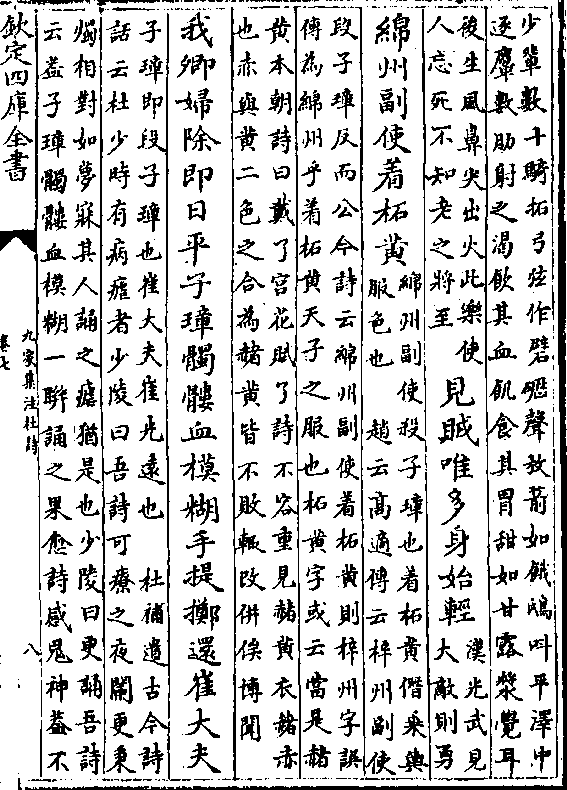 少輩數十騎拓弓弦作礔礰聲放箭如餓鴟叫平澤中
逐麞數肋射之渴飲其血飢食其胃甜如甘露漿覺耳
後生風鼻尖出火此樂使
人忘死不知老之將至
見賊唯多身始輕
漢光武見
大敵則勇
綿州副使着柘黄
綿州副使段子璋也着柘黄僭乘輿
服色也 趙云高適傳云梓州副使
段子璋反而公今詩云綿州副使着柘黄則梓州字誤
傳為綿州乎着柘黄天子之服也柘黄字或云當是赭
黄本朝詩曰戴了宫花賦了詩不容重見赭黄衣赭赤
也赤與黄二色之合為赭黄皆不敢輒改併俟博聞
我卿婦除即日平子璋髑髏血模糊手提擲還崔大夫
子璋即段子璋也崔大夫崔光遠也 杜補遺古今詩
話云杜少時有病瘧者少陵曰吾詩可療之夜闌更秉
燭相對如夢寐其人誦之瘧猶是也少陵曰更誦吾詩
云蓋子璋髑髏血模糊一聯誦之果愈詩感鬼神蓋不
欽定四庫全書
九家集注杜詩
卷七
八